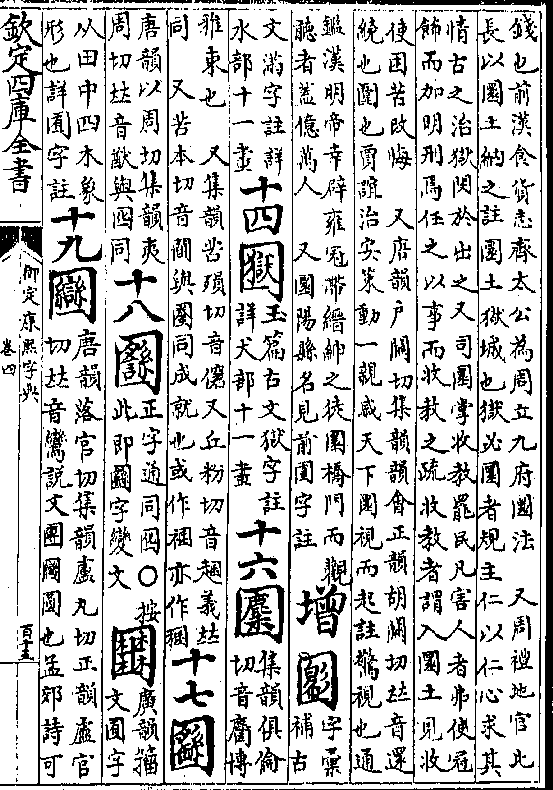 錢也前漢食貨志齊太公為周立九府圜法　又周禮地官比
長以圜土納之註圜土獄城也獄必圜者規主仁以仁心求其
情古之治獄閔於出之又司圜掌收教罷民凡害人者弗使冠
飾而加明刑焉任之以事而收教之疏收教者謂入圜土見收
使困苦改悔　又唐韻戶關切集韻韻會正韻胡關切𠀤音還
繞也圍也賈誼治安策動一親戚天下圜視而起註驚視也通
鑑漢明帝幸辟雍冠帶縉紳之徒圜橋門而觀
聽者蓋億萬人　又圜陽縣名見前圁字註
增　字彙
補古
文滿字註詳
水部十一畫
十四　玉篇古文獄字註
詳犬部十一畫
十六　集韻俱倫
切音麕博
雅束也　又集韻苦殞切音僒又丘粉切音趣義𠀤
同　又苦本切音閫與圂同成就也或作稇亦作
十七
唐韻以周切集韻夷
周切𠀤音猷與囮同
十八　正字通同囮○按
此即圝字變文
廣韻籀
文囿字
以田中四木象
形也詳囿字註
十九　圞　唐韻落官切集韻盧丸切正韻盧官
切𠀤音鸞說文團圞圓也孟郊詩可
欽定四庫全書
御定康熙字典
卷四